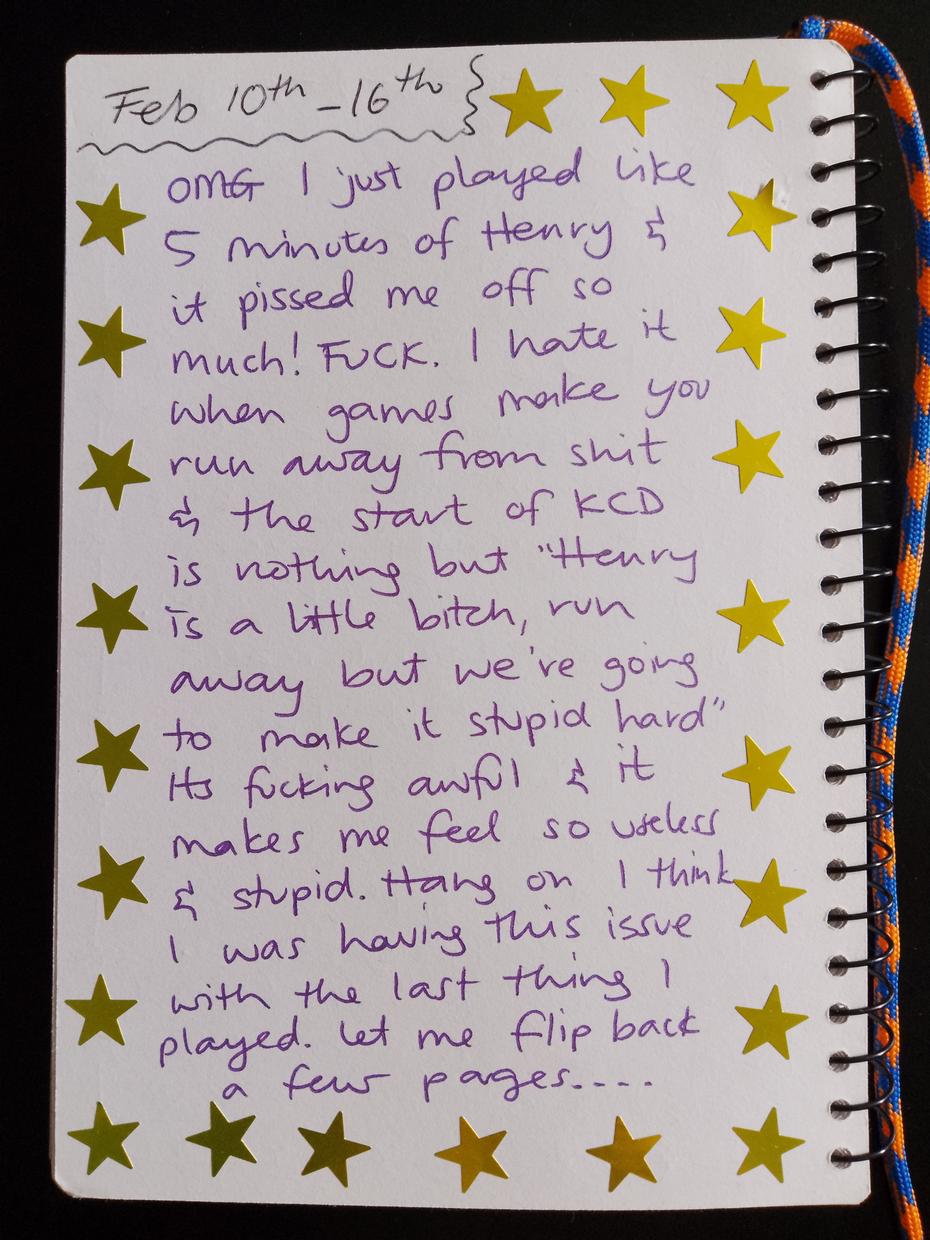 Feb 10th - 16th
OMG I just played like
5 minutes of Henry &
it pissed me off so
much! FUCK. I hate it
when games make you
run away from shit
& the start of KCD
is nothing but "Henry
is a little bitch, run
away but we're going
to make it stupid hard"
Its fucking awful & it
makes me feel so useless
& stupid. Hang on I think
I was having this issue
with the last thing I
played. Let me flip back
a few pages....